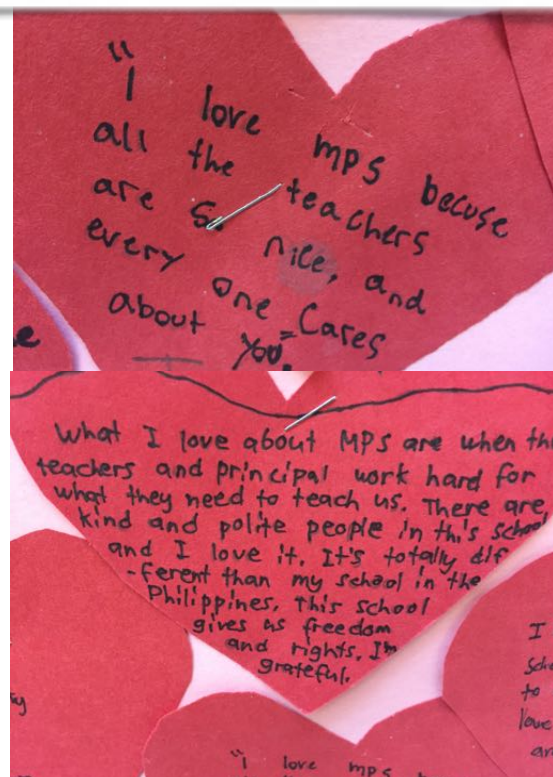 "I love mps becuse
all the teachers
are so nice, and
every one Cares
about you."
What I love about MPS are when the
teachers and principal work hard for
what they need to teach us. There are,
kind and polite people in this school
and I love it. It's totally dif
-ferent than my school in the
Philippines. This school
gives us freedom
and rights. I'm
grateful.
I
to
love
"I love mps